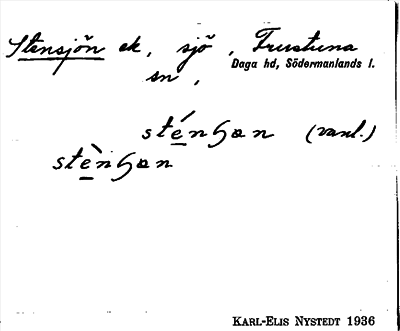 Stensjön ek, sjö, Frustuna
Daga hd, Södermanlands l.
sn,
sténʃɷn (vanl.)
stènʃɷn
KARL-ELIS NYSTEDT 1936